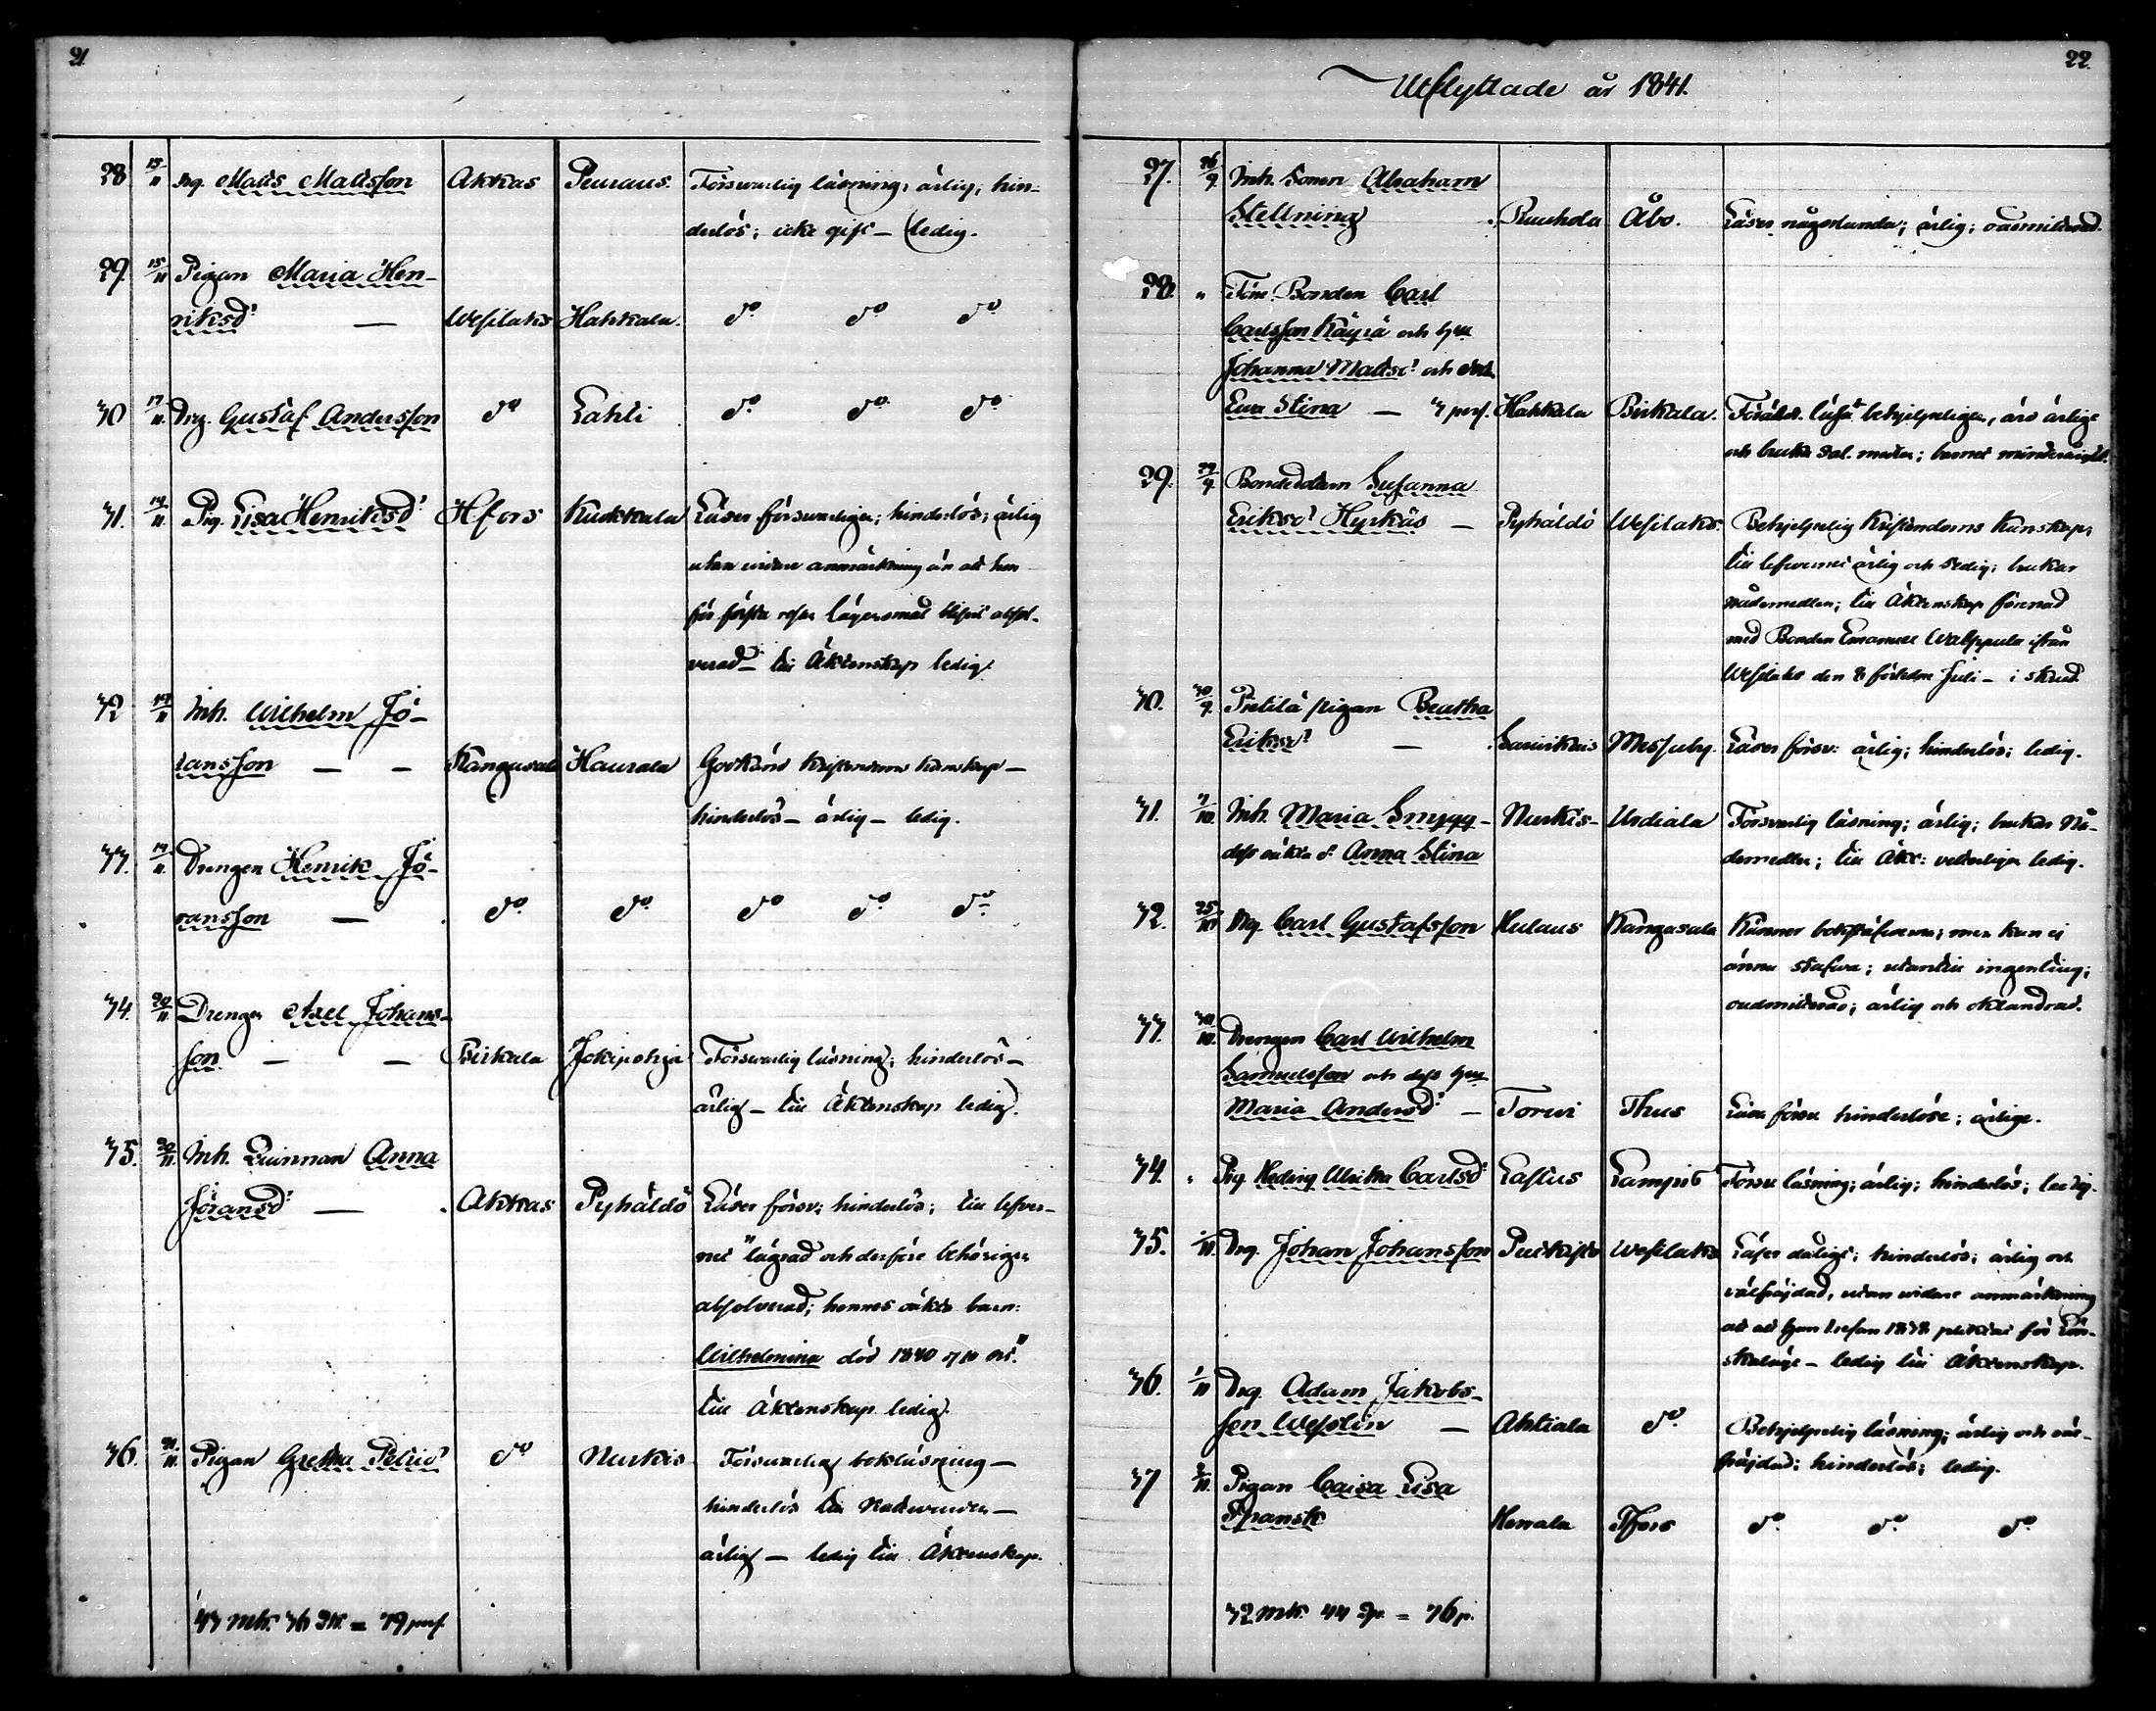 21.
28 15/11 Drg. Matts Mattsson Akkas Peuraus. Förswarlig läsning; ärlig; hin-
derlös; icke gift — ledig.
29. 15/11 Pigan Maria Hen-
riksdr — Wesilaks Hakkala. do do do
30 17/11 Drg. Gustaf Andersson do Lahti do do do
31. 19/11 Pig. Lisa Henriksdr Hfors Kukkala Läser förswarligen; hinderlös; ärlig
utan vidare anmärkning än att hon
för första resan lägersmål blifvit absol-
verad — till Äktenskap ledig.
32 19/11 Inh. Wilhelm Jö-
ransson — — Kangasala Haurala Godkänd kristendoms kunskap —
hinderlös — ärlig — ledig.
33. 19/11 Drengen Henrik Jö-
ransson — do do do do do
34. 20/11 Drengen Axel Johans-
son — — Birkala Jokipohja Förswarlig läsning; hinderlös —
ärlig — till Äktenskap ledig.
35. 20/11 Inh. Qvinnan Anna
Jöransdr — Akkas Pyhäldö Läser försv; hinderlös; till lefver-
net "lägrad och derföre behörigen
absolverad; hennes oäkta barn:
Wilhelmina död 1840 3/10 ort."
till Äktenskap ledig.
36. 21/11 Pigan Gretha Petrisdr do Nurkis Förswarlig bokläsning —
hinderlös till Nattvarden —
ärlig — ledig till Äktenskap.
43 mk. 36 Qk. = 79 pers.
22.
Utflyttade år 1841.
27. 26/9 Inh. Sonen Abraham
Stellning Ruuhola Åbo. Läser någorlunda; ärlig; oadmitterad.
28. " Förre Bonden Carl
Carlsson Käyrä och hu
Johanna Mattsdr och dott.
Eva Stina — 3 pers. Hakkala Birkala. Föräldr. läsa behjelpligen, äro ärlige
och bruka sal. medlen; barnet minderårigt.
29. 29/9 Bondedottern Susanna
Eriksdr Hyrkäs — Pyhäldö Wesilaks. Behjelpelig Kristendoms Kunskap;
till lefvernet ärlig och sedig; brukar
nådemedlen; till Äktenskap förenad
med Bonden Emanuel Walppula ifrån
Wesilaks den 8 förledne Juli —
30. 30/9 Pietilä pigan Beatha
Eriksdr — Sarvikais Messuby. Läser försv: ärlig; hinderlös; ledig.
31. 7/10 Inh. Maria Smygg —
dess oäkta d. Anna Stina Nurkis — Urdiala Försvarlig läsning; ärlig; brukar Nå-
demedlen; till Äkt: veterligen ledig.
32. 25/10 Drg. Carl Gustafsson Kulaus Kangasala Känner bokstäfverna; men kan ej
ännu stafva; utantill ingenting;
oadmitterad; ärlig och oklandrad.
33. 30/10 Drengen Carl Wilhelm
Samuelsson och dess hu
Maria Andersdr — Torivi Thus Läsa försv. hinderlöse; ärlige.
34. " Pig. Hedvig Ulrika Carlsdr Lastus Lampis Försv. läsning; ärlig; hinderlös; ledig.
35. 1/11 Drg. Johan Johansson Wesilaks Läser dåligt; hinderlös; ärlig och
välfräjdad, utan vidare anmärkning
än att han 1838 pliktat för Lön-
skaläge — ledig till Äktenskap.
36. 1/11 Drg. Adam Jakobs-
son Westlin — Ahtiala do Behjelpelig läsning; ärlig och väl-
fräjdad; hinderlös; ledig.
37 2/11 Pigan Caisa Lisa
Spansk Hervala Tfors do do do
32 mk. 44 Qv. = 76 p.